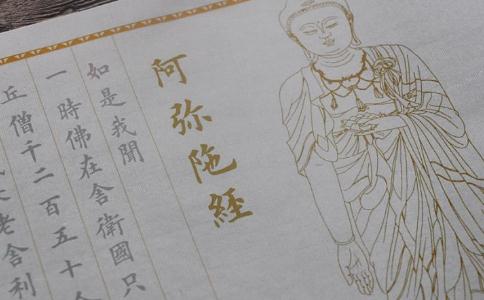 阿弥陁經
如是我聞
一時佛在舍衛國只
丘僧千二百五十
老舍利